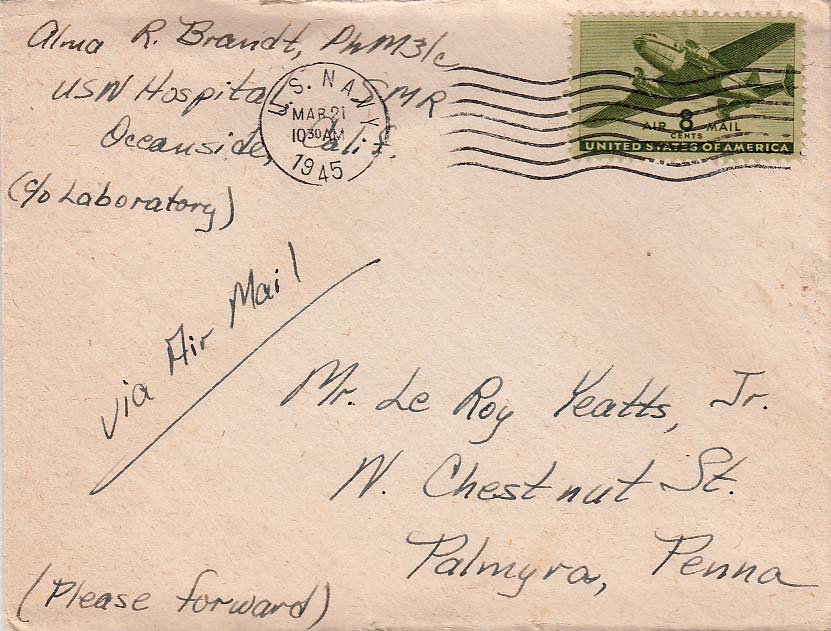 Alma R. Brandt, PhM3/c
USN Hospital, SMR
Oceanside, Calif.
(c/o Laboratory)
U.S. NAVY
MAR 21
10 30 AM
1945
AIR 8 MAIL
CENTS
UNITED STATES OF AMERICA
via Air Mail
Mr. Le Roy Yeatts, Jr.
N. Chestnut St.
Palmyra, Penna
(Please forward)